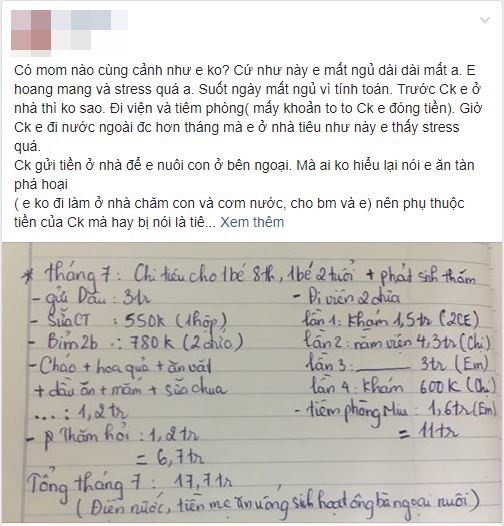 Có mom nào cùng cảnh như e ko? Cứ như này e mất ngủ dài dài mất a. E
hoang mang và stress quá a. Suốt ngày mất ngủ vì tính toán. Trước Ck e ở
nhà thì ko sao. Đi viện và tiêm phòng( mấy khoản to to Ck e đóng tiền). Giờ
Ck e đi nước ngoài đc hơn tháng mà e ở nhà tiêu như này e thấy stress
quá.
Ck gửi tiền ở nhà để e nuôi con ở bên ngoại. Mà ai ko hiểu lại nói e ăn tàn
phá hoại
( e ko đi làm ở nhà chăm con và cơm nước, cho bm và e) nên phụ thuộc
tiền của Ck mà hay bị nói là tiê... Xem thêm
* Tháng 7: Chi tiêu cho 1 bé 8th, 1 bé 2 tuổi + phát sinh thăm
- gửi Dâu: 3tr
- Sữa CT : 550k (1 hộp)
- Bỉm 2b : 780k (2 đứa)
- Cháo + hoa quả + ăn vặt
+ dầu ăn + mắm + sữa chua
...: 1,2tr
- p Thăm hỏi: 1,2tr
= 6,7tr
- Đi viện 2 đứa
lần 1: Khám 1,5tr (2CE)
lần 2: nằm viện 4,3tr (Chị)
lần 3: ____ 3tr (Em)
lần 4: Khám 600k (Chị)
- tiêm phòng Miu : 1,6tr (Em)
= 11tr
Tổng tháng 7 : 17,7tr
( Điện nước, tiền mẹ ăn uống sinh hoạt ông bà ngoại nuôi )